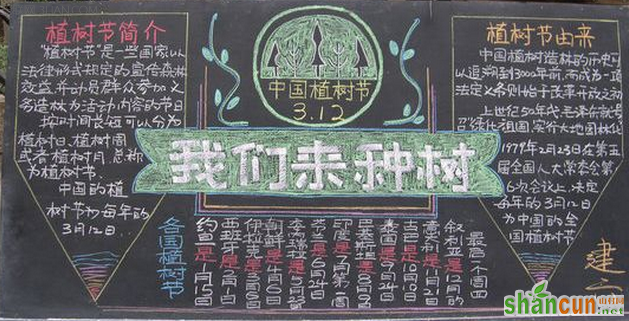 植树节简介
"植树节"是一些国家以
法律形式规定的宣传森林
效益并动员群众参加义
务造林为活动内容的节日
按时间长短可以分为
植树日、植树周
或者植树月、总称
为植树节.
中国的植
树节为每年的
3月12日.
中国植树节
3.12
我们来种树
植树节由来
中国植树造林的历史可
以追溯到3000年前,而成为一项
法定义务则始于改革开放之初
上世纪50年代,毛泽东就号
召"绿化祖国,实行大地园林化
1979年2月23日在第五
届全国人大常委会第
6次会议上,决定
每年的3月12日
为中国的全
国植树节
各国植树节
约旦是1月15日
西班牙是2月1日
伊拉克是
朝鲜是4月6日
印度是7月第一周
巴基斯坦是
泰国是9月24日
古巴是10月10日
意大利是11月21日
叙利亚是12月的
最后一个周四
建
shancun
山村网
.net